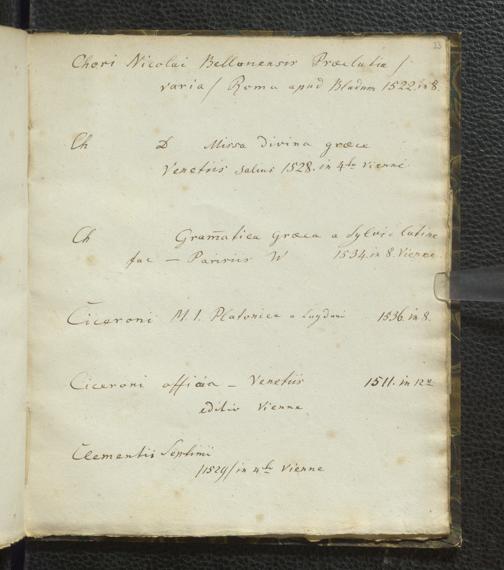 33
Chori Nicolai Bellonensis Prælutia /
varia / Roma apud Bladum 1522 in 8
Ch D Missa divina græce
Venetiis Salius 1528. in 4to Vienne
Ch Gramatica Græca a Sylvio latine
fac — Parisiis W 1534. in 8. Vienne
Ciceroni M. T. Platonica a Lugduni 1536 in 8.
Ciceroni officia — Venetiis 1511. in 12o
editio Vienne
Clementis Septimi
/1529/ in 4to Vienne